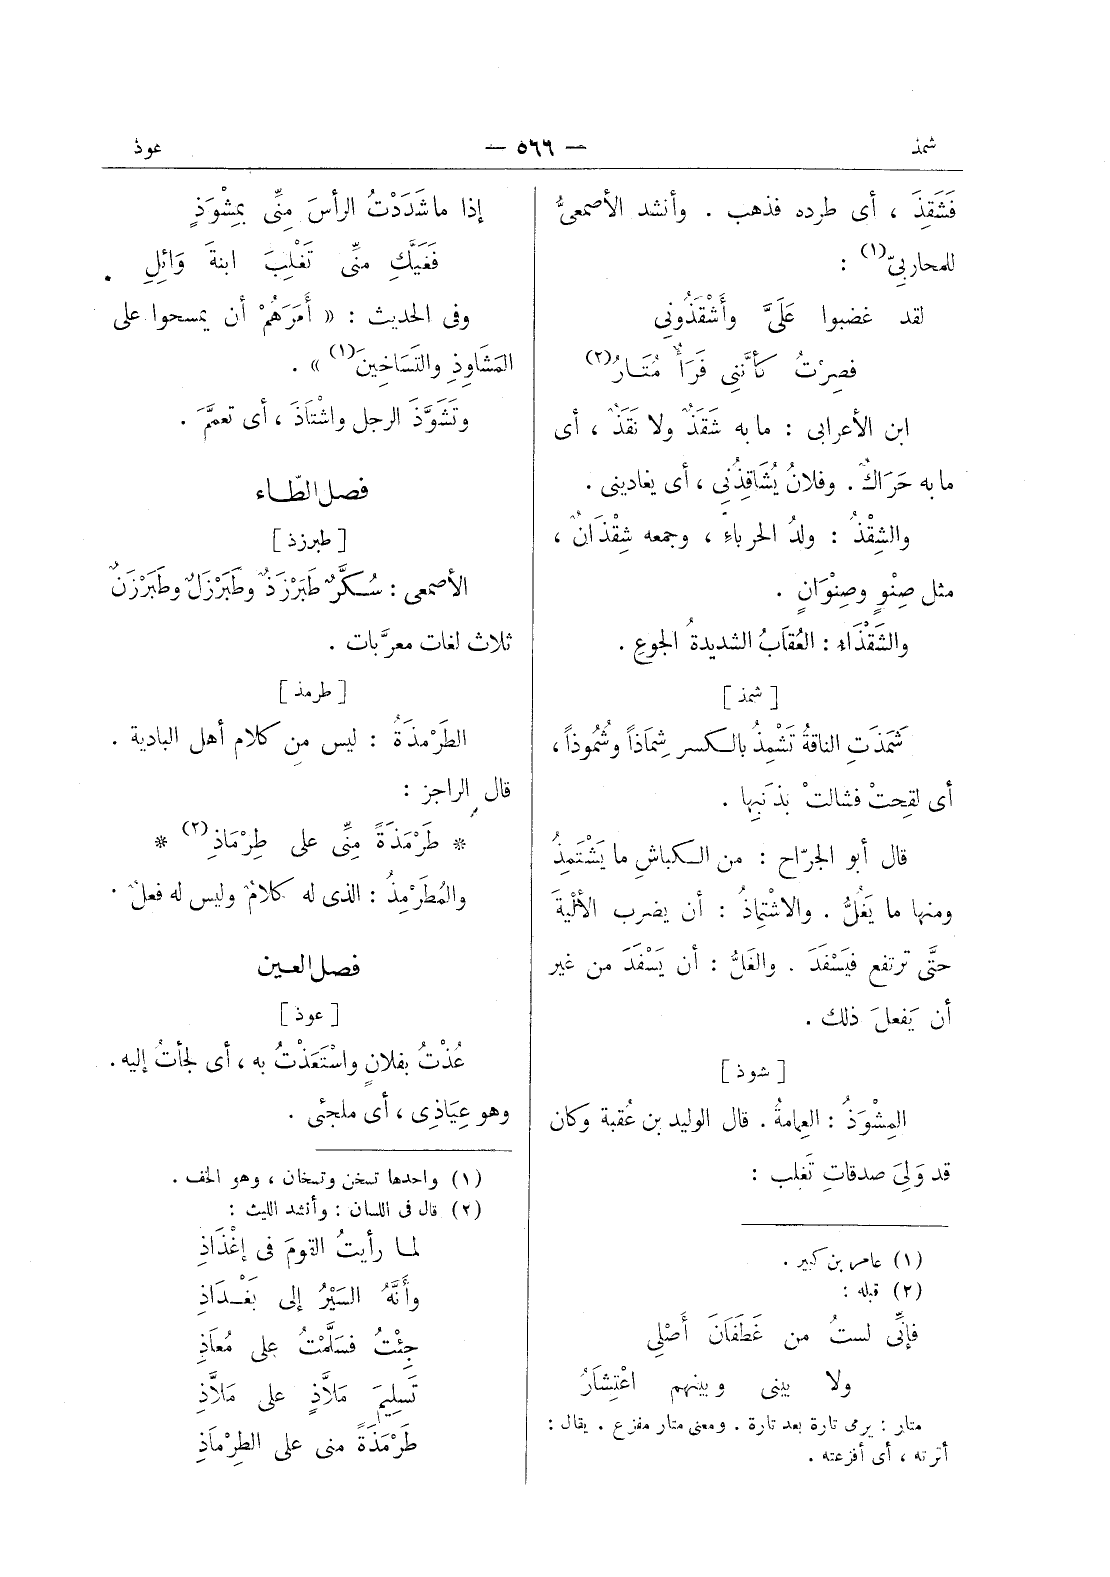 شمذ
— ٥٦٦ —
عوذ
فَشَقِذَ ، أى طرده فذهب . وأنشد الأصمعىُّ
للمحاربىّ(١) :
لقد غضبوا عَلَىَّ وأَشْقَذُونِى
فصِرْتُ كأنَّنِى فَرَأٌ مُتَارُ(٢)
ابن الأعرابى : ما به شَقَذٌ ولا نَقَذٌ ، أى
ما به حَرَاكٌ . وفلانٌ يُشَاقِذُنِى ، أى يغادينى .
والشِقْذُ : ولدُ الحرباءِ ، وجمعه شِقْذَانٌ ،
مثل صِنْوٍ وصِنْوَانٍ .
والشَقْذَاء : العُقَابُ الشديدةُ الجوعِ .
[ شمذ ]
شَمَذَتِ الناقةُ تَشْمِذُ بالكسر شِمَاذاً وشُمُوذاً ،
أى لقِحتْ فشالتْ بذَنَبِها .
قال أبو الجرّاح : من الكباشِ ما يَشْتَمِذُ
ومنها ما يَغُلُّ . والاشْتِمَاذُ : أن يضرب الأَلْيةَ
حتَّى ترتفع فَيَسْفَدَ . والغَلُّ : أن يَسْفَدَ من غير
أن يَفعلَ ذلك .
[ شوذ ]
المِشْوَذُ : العِمامةُ . قال الوليد بن عُقبة وكان
قد وَلِىَ صدقاتِ تَغلب :
(١) عامر بن كبير .
(٢) قبله :
فإنِّى لستُ من غَطَفَانَ أَصْلِى
ولا بينى وبينهم اعْتِشَارُ
متار : يرمى تارة بعد تارة . ومعنى متار مفزع . يقال :
أترته ، أى أفزعته .
إذا ما شَدَدْتُ الرأسَ مِنِّى بِمِشْوَذٍ
فَغَيَّكِ مِنِّى تَغْلِبَ ابنةَ وَائِلِ .
وفى الحديث : « أَمَرَهُمْ أن يمسحوا على
المَشَاوِذِ والتَسَاخِينَ(١) » .
وتَشَوَّذَ الرجل واشْتَاذَ ، أى تعمَّمَ .
فصل الطّاء
[ طبرزذ ]
الأصمعى : سُكَّرٌ طَبَرْزَذٌ وطَبَرْزَلٌ وطَبَرْزَنٌ
ثلاث لغات معرَّبات .
[ طرمذ ]
الطَرْمذَةُ : ليس من كلام أهل البادية .
قال الراجز :
* طَرْمَذَةً مِنِّى على طِرْمَاذِ(٢) *
والمُطَرْمِذُ : الذى له كلامٌ وليس له فعلٌ .
فصل العين
[ عوذ ]
عُذْتُ بفلانٍ واسْتَعَذْتُ به ، أى لجأتُ إليه .
وهو عِيَاذِى ، أى ملجئى .
(١) واحدها تسخن وتسخان ، وهو الخف .
(٢) قال فى اللسان : وأنشد الليث :
لما رأيتُ القومَ فى إغْذَاذِ
وأَنَّهُ السَيْرُ إلى بَغْدَاذِ
جِئْتُ فسَلَّمْتُ على مُعَاذِ
تَسلِيمَ مَلاَّذٍ على مَلاَّذِ
طَرْمَذَةً منى على الطِرْمَاذِ